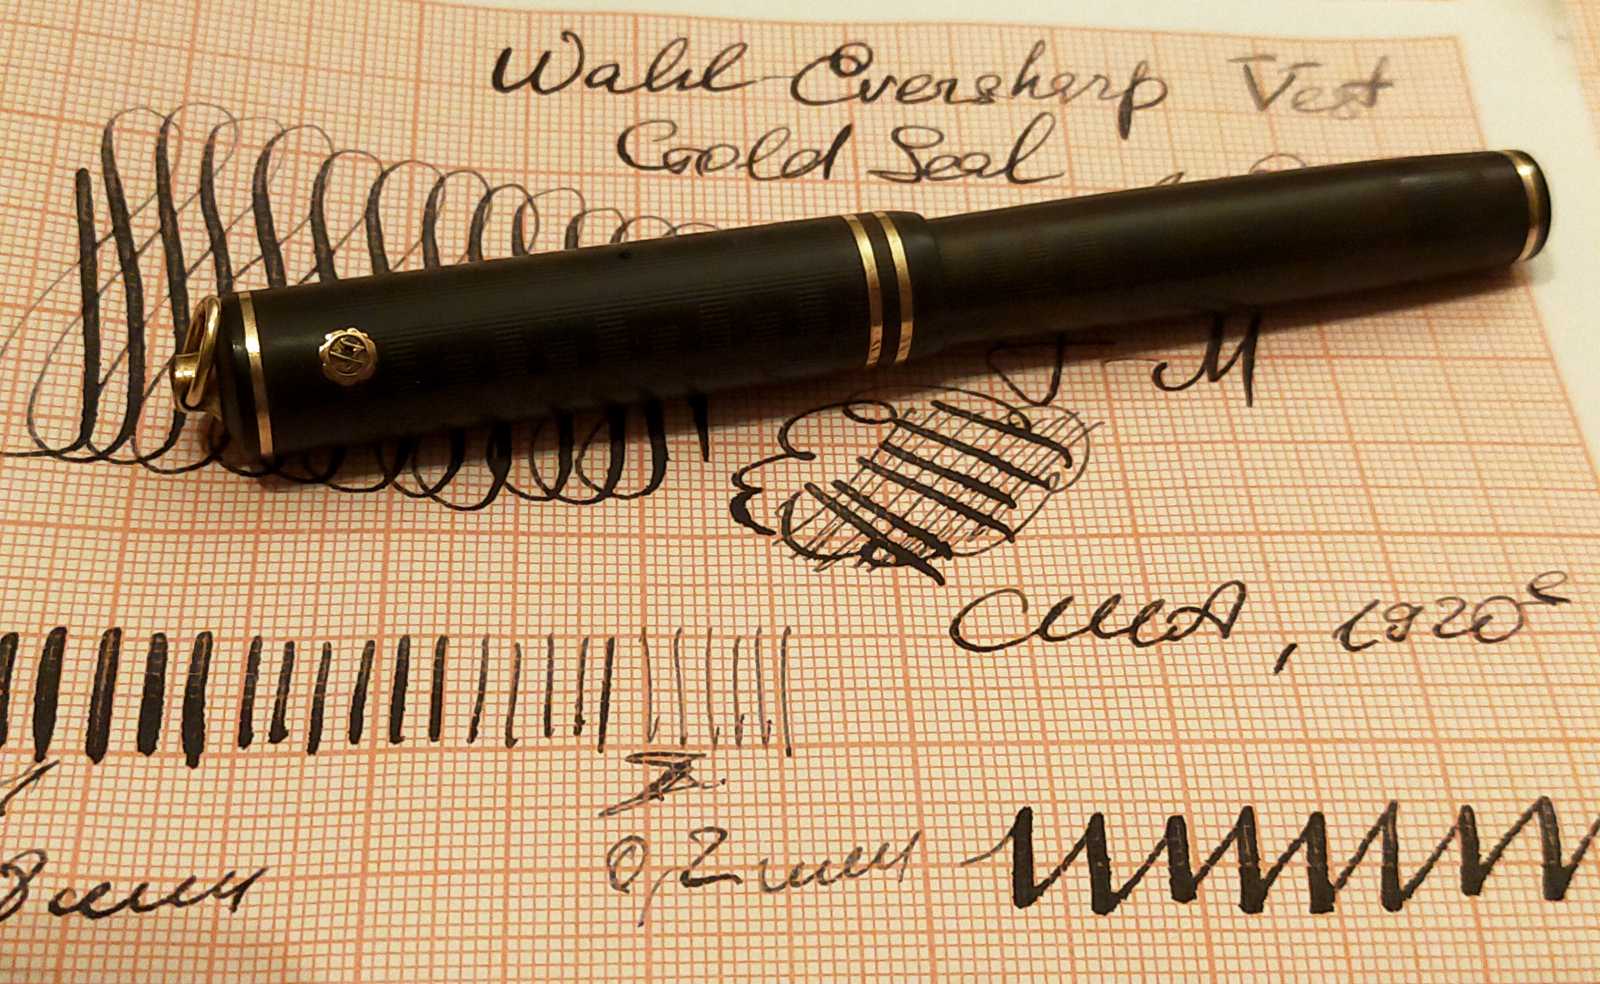 Wahl-Eversharp Vest
Gold Seal
F-M
США, 1920е
0,2 мм
8 мм